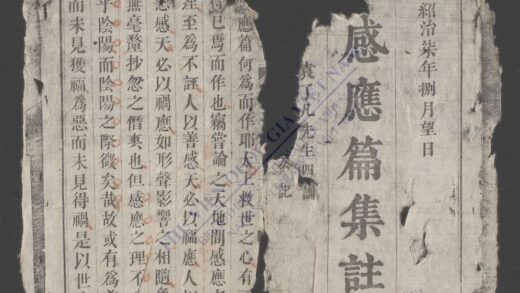 紹治柒年捌月望日
感應篇集註
袁了凡先生四訓
記
應篇何為而作耶太上救世之心有
已焉而作也竊嘗論之天地間感應
理至為不誣人以善感天必以福應人以
惡感天必以禍應如形聲影響之相隨
無毫釐抄忽之僭爽也但感應之理不
乎陰陽而陰陽之際微矣哉故或有為
而未見獲福為惡而未見得禍是以世